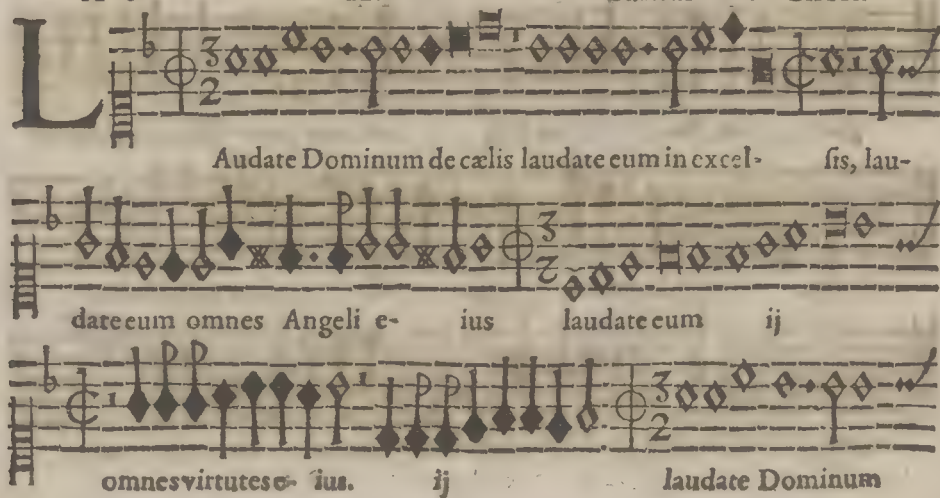 L
Audate Dominum de cælis laudate eum in excel- ſis, lau-
date eum omnes Angeli e- ius laudate eum ij
omnes virtutes e- ius. ij laudate Dominum